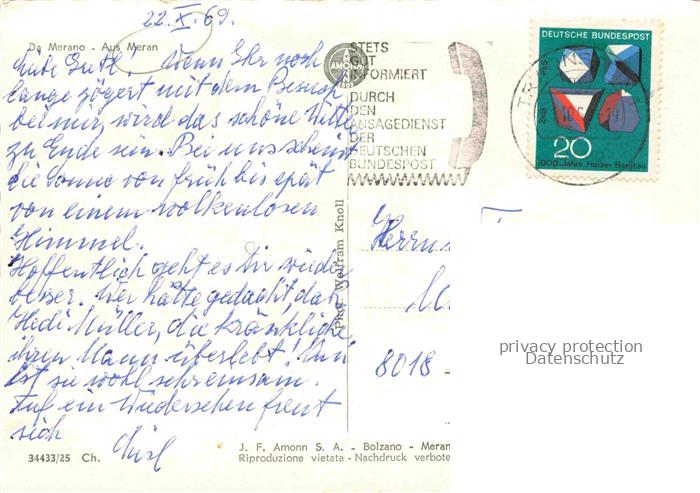 22.X.69.
Da Merano - Aus Meran
Wenn Ihr noch
lange zögert mit dem Besuch
bei mir, wird das schöne Wetter
zu Ende sein. Bei uns scheint
die Sonne von früh bis spät
von einem wolkenlosen
Himmel.
Hoffentlich geht es Dir wieder
besser. Wer hätte gedacht, daß
Hedi Müller, die kränkliche
ihren Mann überlebt! Nun
ist sie wohl sehr einsam.
Auf ein Wiedersehen freut
sich
34433/25 Ch.
J. F. Amonn S. A. - Bolzano - Meran
Riproduzione vietata - Nachdruck verbote
Phot. Wolfram Knoll
AMONN
STETS
GUT
INFORMIERT
DURCH
DEN
ANSAGEDIENST
DER
DEUTSCHEN
BUNDESPOST
DEUTSCHE BUNDESPOST
20
1000 Jahre Harzer Bergbau
Herrn
8018
privacy protection
Datenschutz